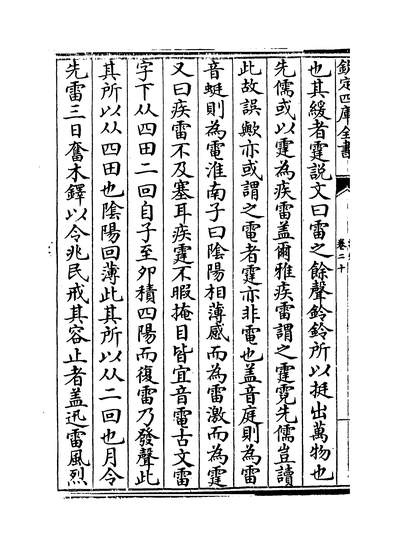 欽定四庫全書
卷二十
也其緩者霆說文曰雷之餘聲鈴鈴所以挺出萬物也
先儒或以霆為疾雷盖爾雅疾雷謂之霆霓先儒豈讀
此故誤歟亦或謂之電者霆亦非電也盖音庭則為雷
音蜓則為電淮南子曰陰陽相薄感而為雷激而為霆
又曰疾雷不及塞耳疾霆不暇掩目皆宜音電古文雷
字下从四田二回自子至夘積四陽而復雷乃發聲此
其所以从四田也陰陽回薄此其所以从二回也月令
先雷三日奮木鐸以令兆民戒其容止者盖迅雷風烈